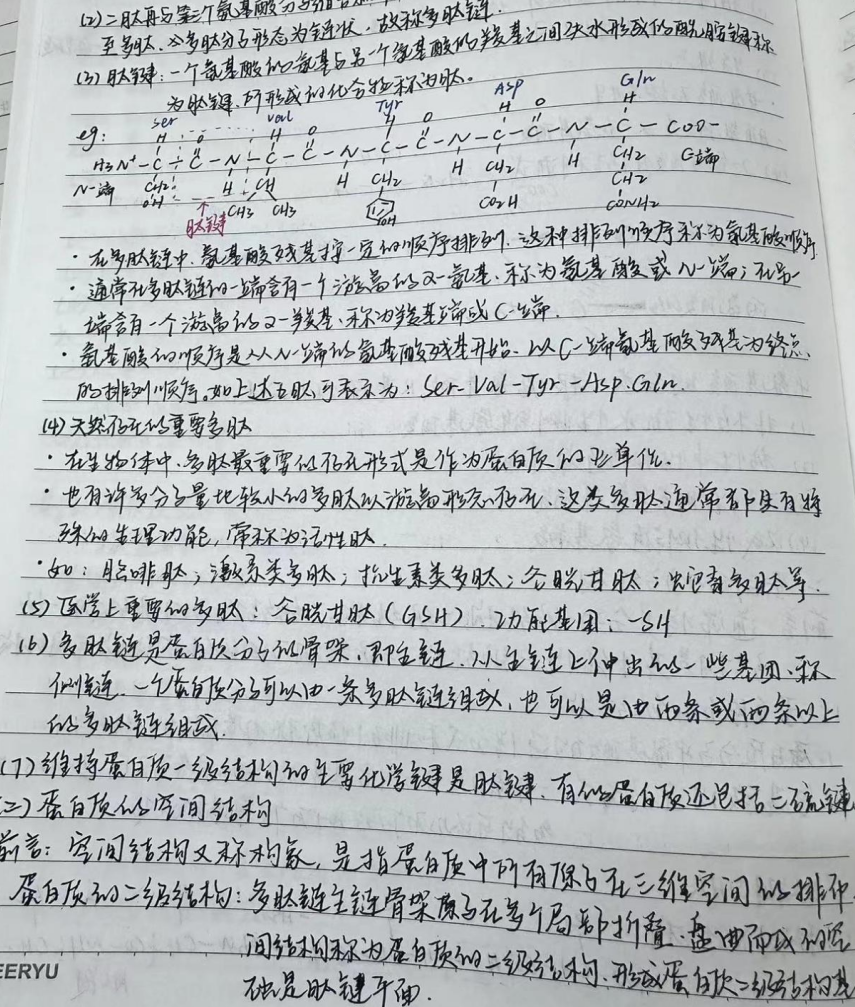 (2) 二肽再与第三个氨基酸分子
至多肽。∵多肽分子形态为链状，故称多肽链.
(3) 肽键：一个氨基酸的氨基与另一个氨基酸的羧基之间失水形成的酰胺键称
为肽键，所形成的化合物称为肽。
eg: Ser Val Tyr Asp Gln
H O H O H O H O H
H3N+ - C - C - N - C - C - N - C - C - N - C - C - N - C - COO-
N-端 CH2 H CH H CH2 H CH2 H CH2 C端
OH CH3 CH3 OH CO2H CH2
肽键 CONH2
· 在多肽链中，氨基酸残基按一定的顺序排列，这种排列顺序称为氨基酸顺序
· 通常在多肽链的一端含有一个游离的α-氨基，称为氨基酸或N-端；在另一
端含有一个游离的α-羧基，称为羧基端或C-端.
· 氨基酸的顺序是从N-端的氨基酸残基开始，以C-端氨基酸残基为终点
的排列顺序。如上述五肽可表示为：Ser-Val-Tyr-Asp.Gln.
(4) 天然存在的重要多肽
· 在生物体中，多肽最重要的存在形式是作为蛋白质的亚单位.
· 也有许多分子量比较小的多肽以游离形态存在，这类多肽通常都具有特
殊的生理功能，常称为活性肽.
· 如：脑啡肽；激素类多肽；抗生素类多肽；谷胱甘肽；蛇毒多肽等.
(5) 医学上重要的多肽：谷胱甘肽(GSH) 功能基团：-SH
(6) 多肽链是蛋白质分子的骨架，即主链，从主链上伸出的一些基团，称
侧链. 一个蛋白质分子可以由一条多肽链组成，也可以是由两条或两条以上
的多肽链组成.
(7) 维持蛋白质一级结构的主要化学键是肽键，有的蛋白质还包括二硫键
(二) 蛋白质的空间结构
前言：空间结构又称构象，是指蛋白质中所有原子在三维空间的排布
蛋白质的二级结构：多肽链主链骨架原子在各个局部折叠、盘曲而成的空
间结构称为蛋白质的二级结构，形成蛋白质二级结构基
础是肽键平面.
EERYU